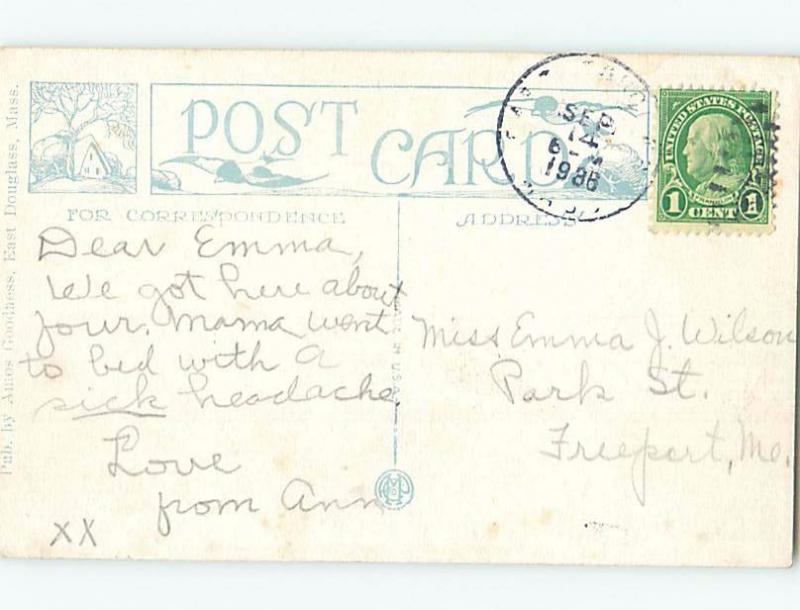 Pub. by Amos Goodness, East Douglass, Mass.
POST CARD
FOR CORRESPONDENCE
ADDRESS
SEP
14
6-
UNITED STATES POSTAGE
FRANKLIN
1 CENT 1
Dear Emma,
We got here about
four. Mama went
to bed with a
sick headache.
Love
from Ann
XX
IN U.S.A.
Miss Emma J. Wilson
Park St.
Freeport, Me.